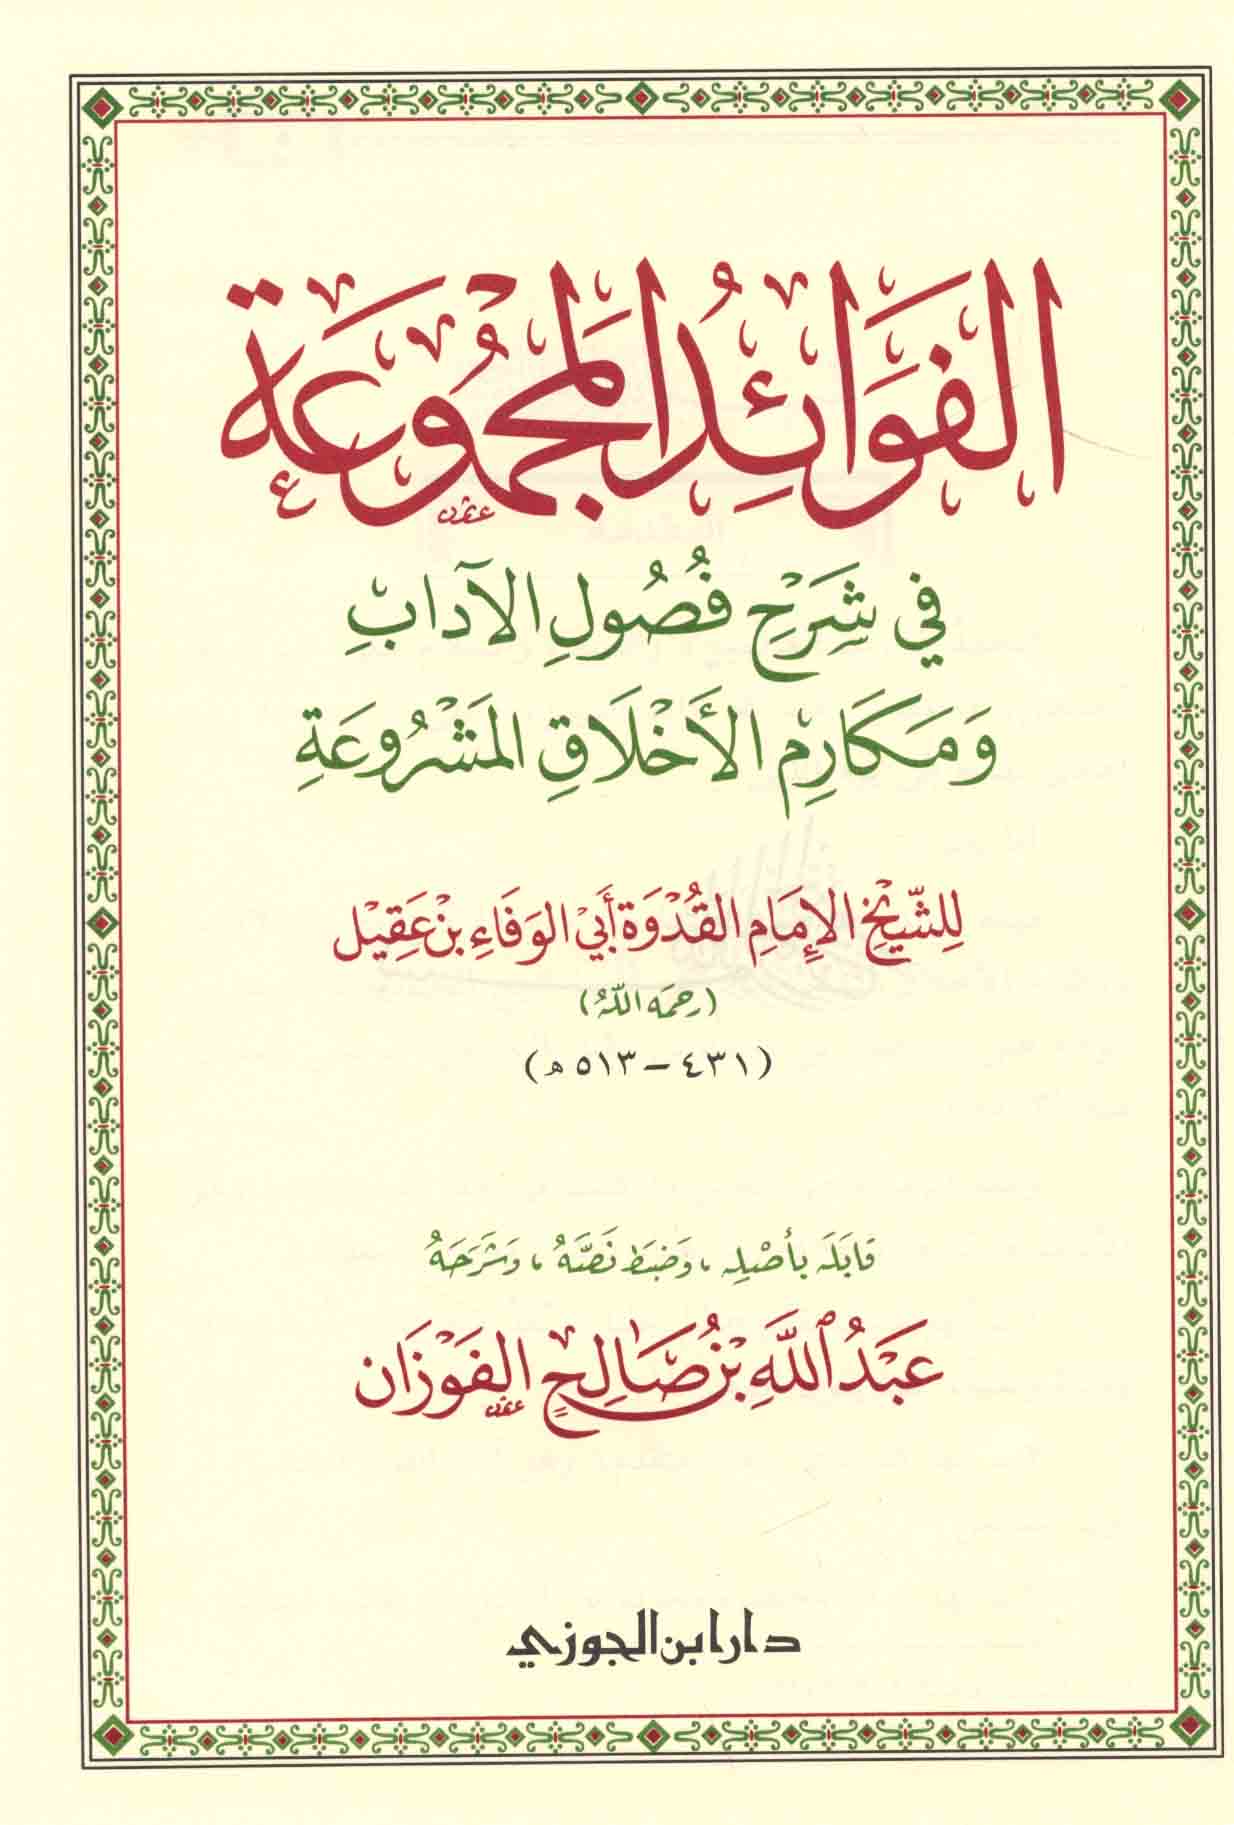 الفَوَائِدُ المَجْمُوعَة
في شَرْحِ فُصُولِ الآدَابِ
وَمَكَارِمِ الأَخْلَاقِ المَشْرُوعَةِ
لِلشَّيْخِ الإِمَامِ القُدْوَةِ أَبي الوَفَاءِ بن عَقِيْل
(رحمه اللّهُ)
(٤٣١ – ٥١٣ هـ)
قابَلَه بأصْلِه، وَضبَطَ نَصَّهُ، وَشَرَحَهُ
عَبْدُ ٱللَّهِ بْنُ صَالِحٍ الفَوْزَان
دار ابن الجوزي